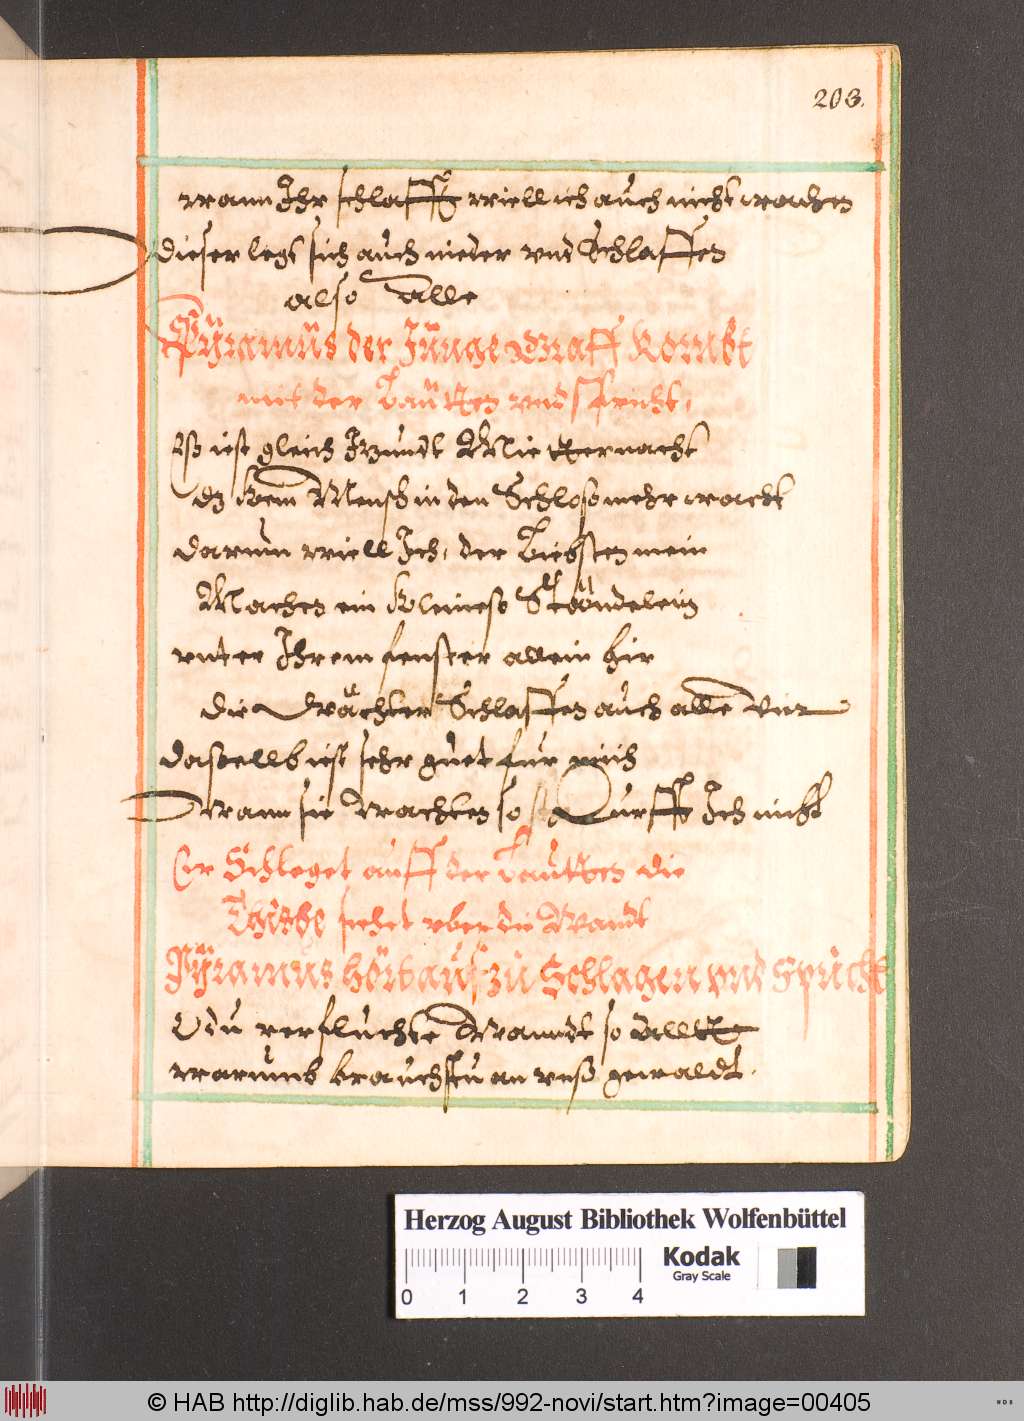 203.
wann Ihr schlafft wiell ich auch nicht wachen
dieser legt sich auch nieder vnd Schlaffen
also alle
Pÿramüs der Jünge Graff Kombt
mit der Lautten vnd spricht,
Eß iest gleich Izundt Mitternacht
dz kein Mensch in den Schloß mehr wacht
darum wiell Ich, der Liebsten mein
Machen ein kleineß Ständelein
vnter Ihrem fenster allein hir
die Wächter Schlaffen auch alle vier
dasselb iest sehr guet fur mich
Wann sie wachten so durfft Ich nicht
Er Schleget auff der Lautten die
Thisbe siehet vber die Wandt
Pÿramus hört auf zu Schlagen vnd Spricht
O du verfluchte Wanndt so allt
warumb brauchstu an vnß gewaldt.
Herzog August Bibliothek Wolfenbüttel
Kodak
Gray Scale
0 1 2 3 4
© HAB http://diglib.hab.de/mss/992-novi/start.htm?image=00405